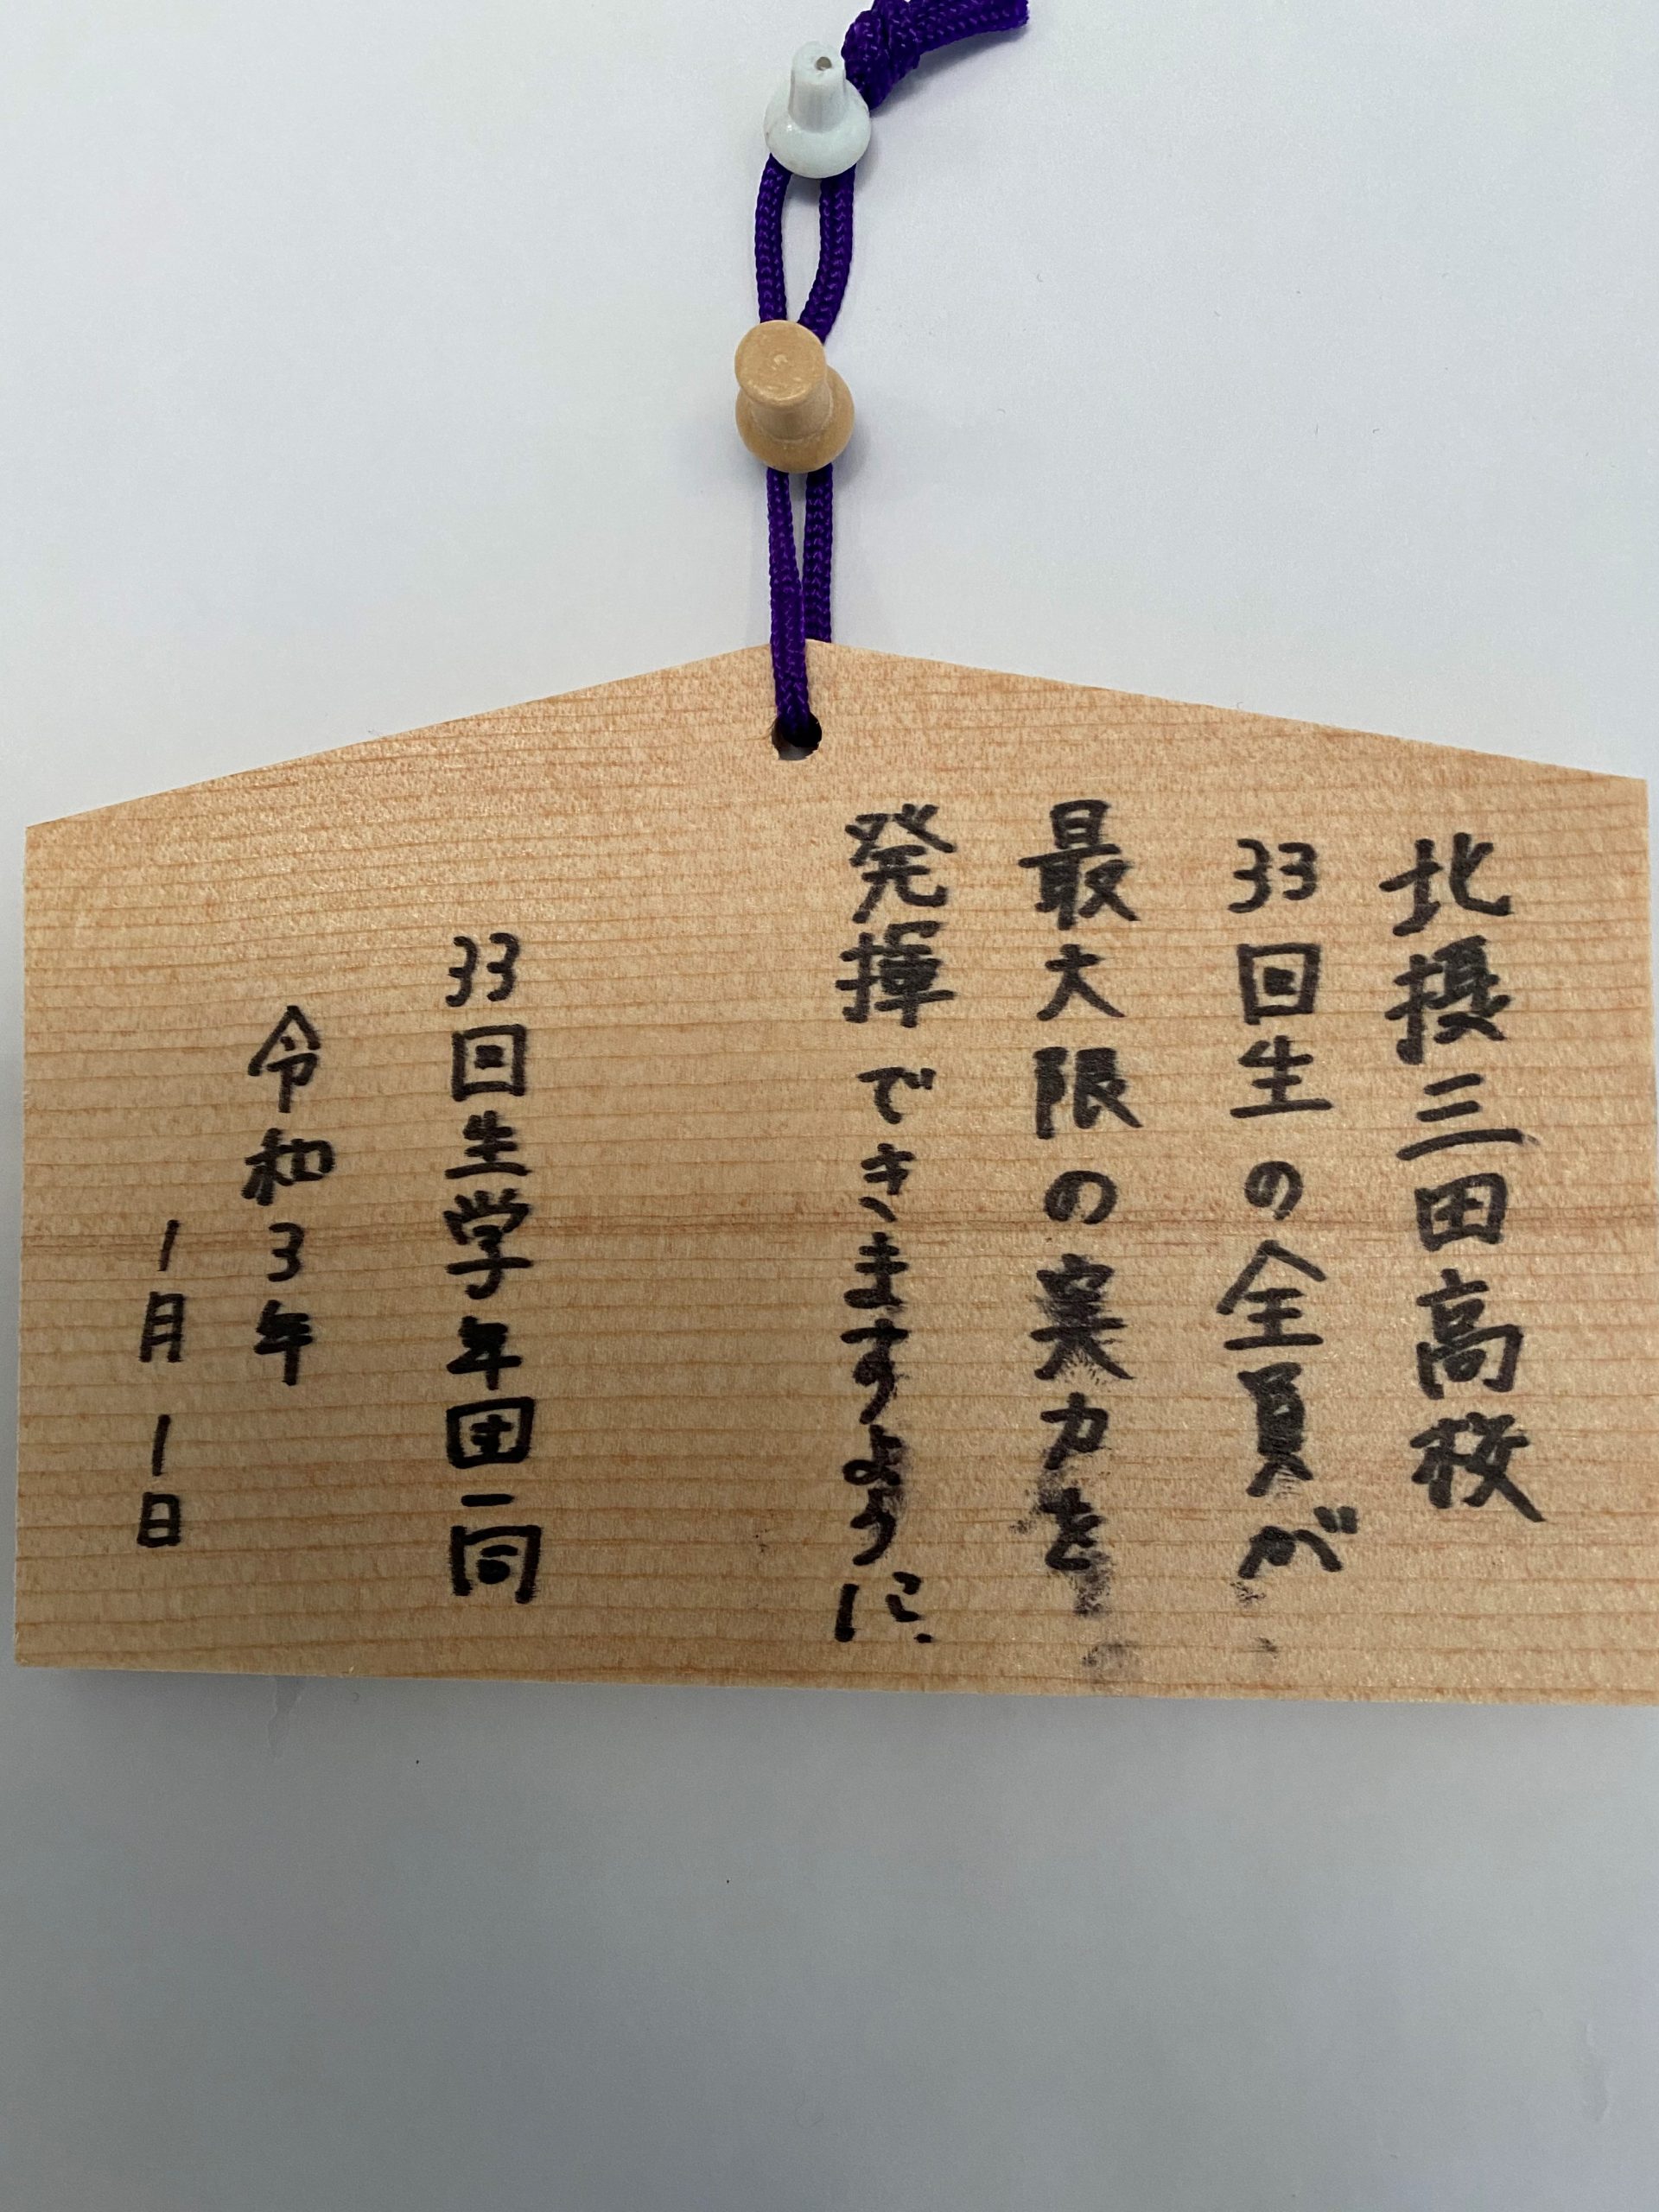 北摂三田高校
33回生の全員が
最大限の実力を
発揮できますように.
33回生学年団一同
令和3年
1月1日